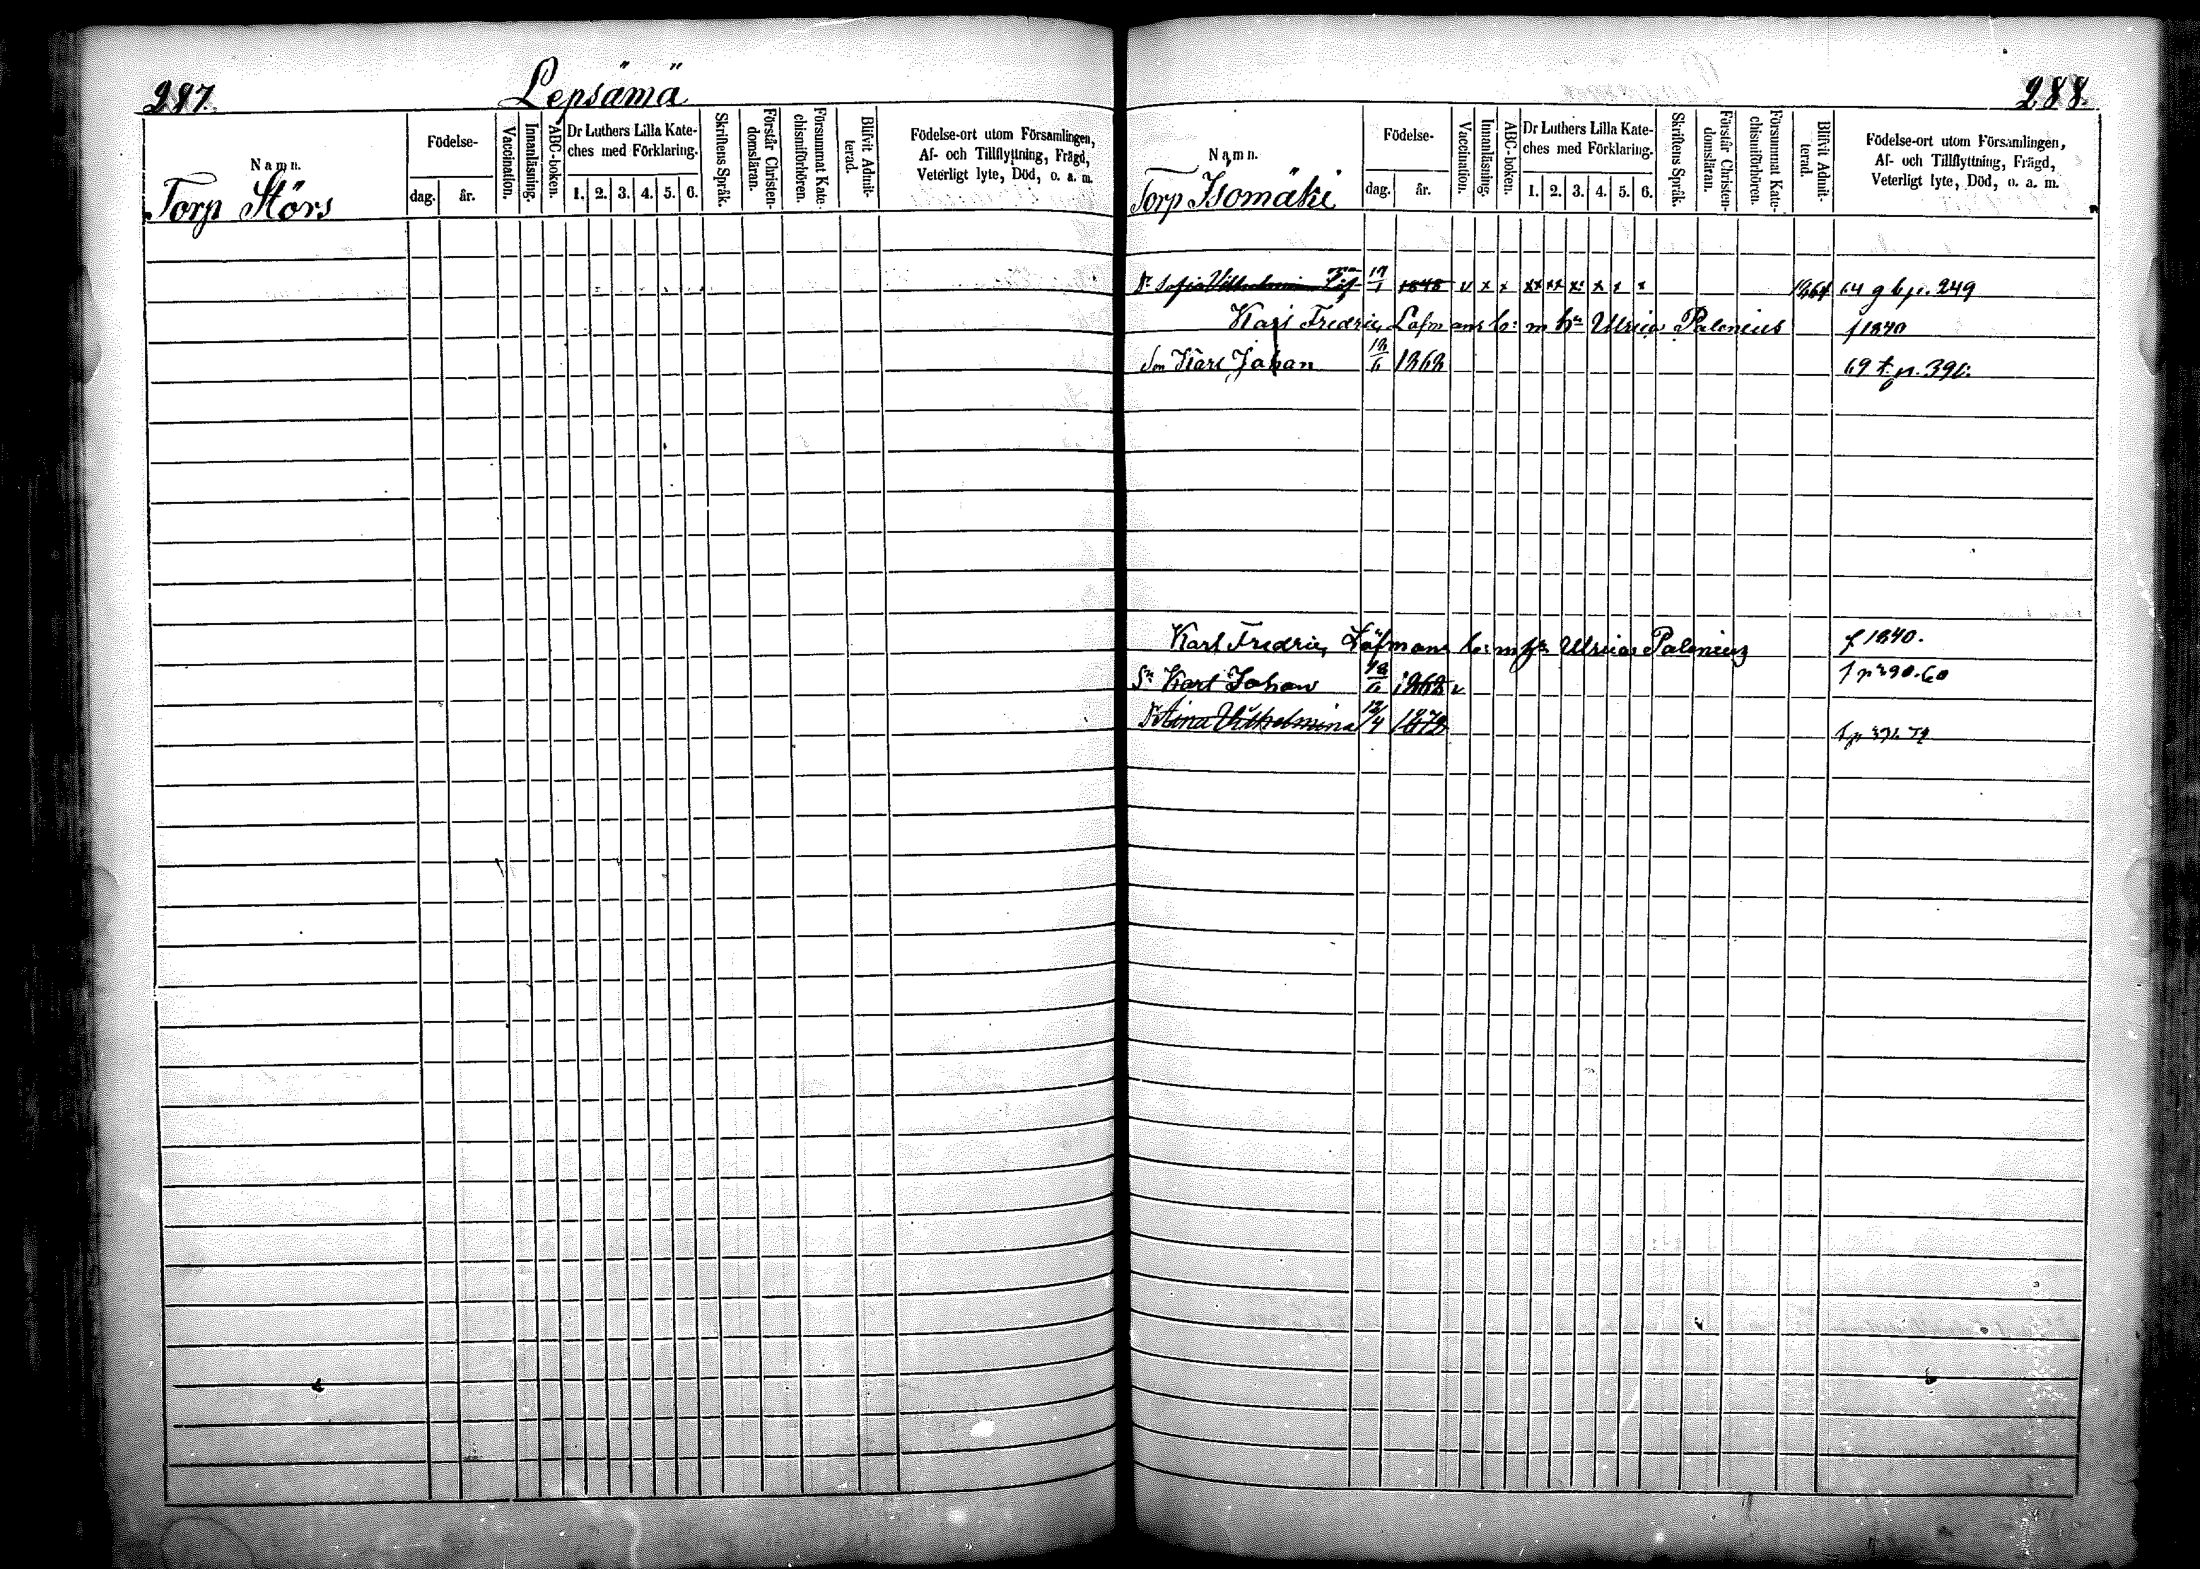 287.
Lepsämä
Namn.
Torp Störs
Födelse-
dag.
år.
Vaccination.
Innanläsning.
ABC-boken.
Dr Luthers Lilla Kate-
ches med Förklaring.
1. 2. 3. 4. 5. 6.
Skriftens Språk.
Förstår Christen-
domsläran.
Försummat Kate-
chismiförhören.
Blifvit Admit-
terad.
Födelse-ort utom Församlingen,
Af- och Tillflyttning, Frägd,
Veterligt lyte, Död, o. a. m.
288.
Namn.
Torp Isomäki
Födelse-
dag.
år.
Vaccination.
Innanläsning.
ABC-boken.
Dr Luthers Lilla Kate-
ches med Förklaring.
1. 2. 3. 4. 5. 6.
Skriftens Språk.
Förstår Christen-
domsläran.
Försummat Kate-
chismiförhören.
Blifvit Admit-
terad.
Födelse-ort utom Församlingen,
Af- och Tillflyttning, Frägd,
Veterligt lyte, Död, o. a. m.
Dr Sofia Vilhelmina Löf 1848 v x x xx xx x x x x 1864 64 g b p. 249
Karl Fredric Löfmans b: m hu Ulrica Palenius f 1840
Son Karl Johan 1862 69 t. p. 391.
Karl Fredric Löfmans b: m hu Ulrica Palenius f 1840.
Sn Karl Johan 1862 v
Dr Aina Vilhelmina 12/4 1872